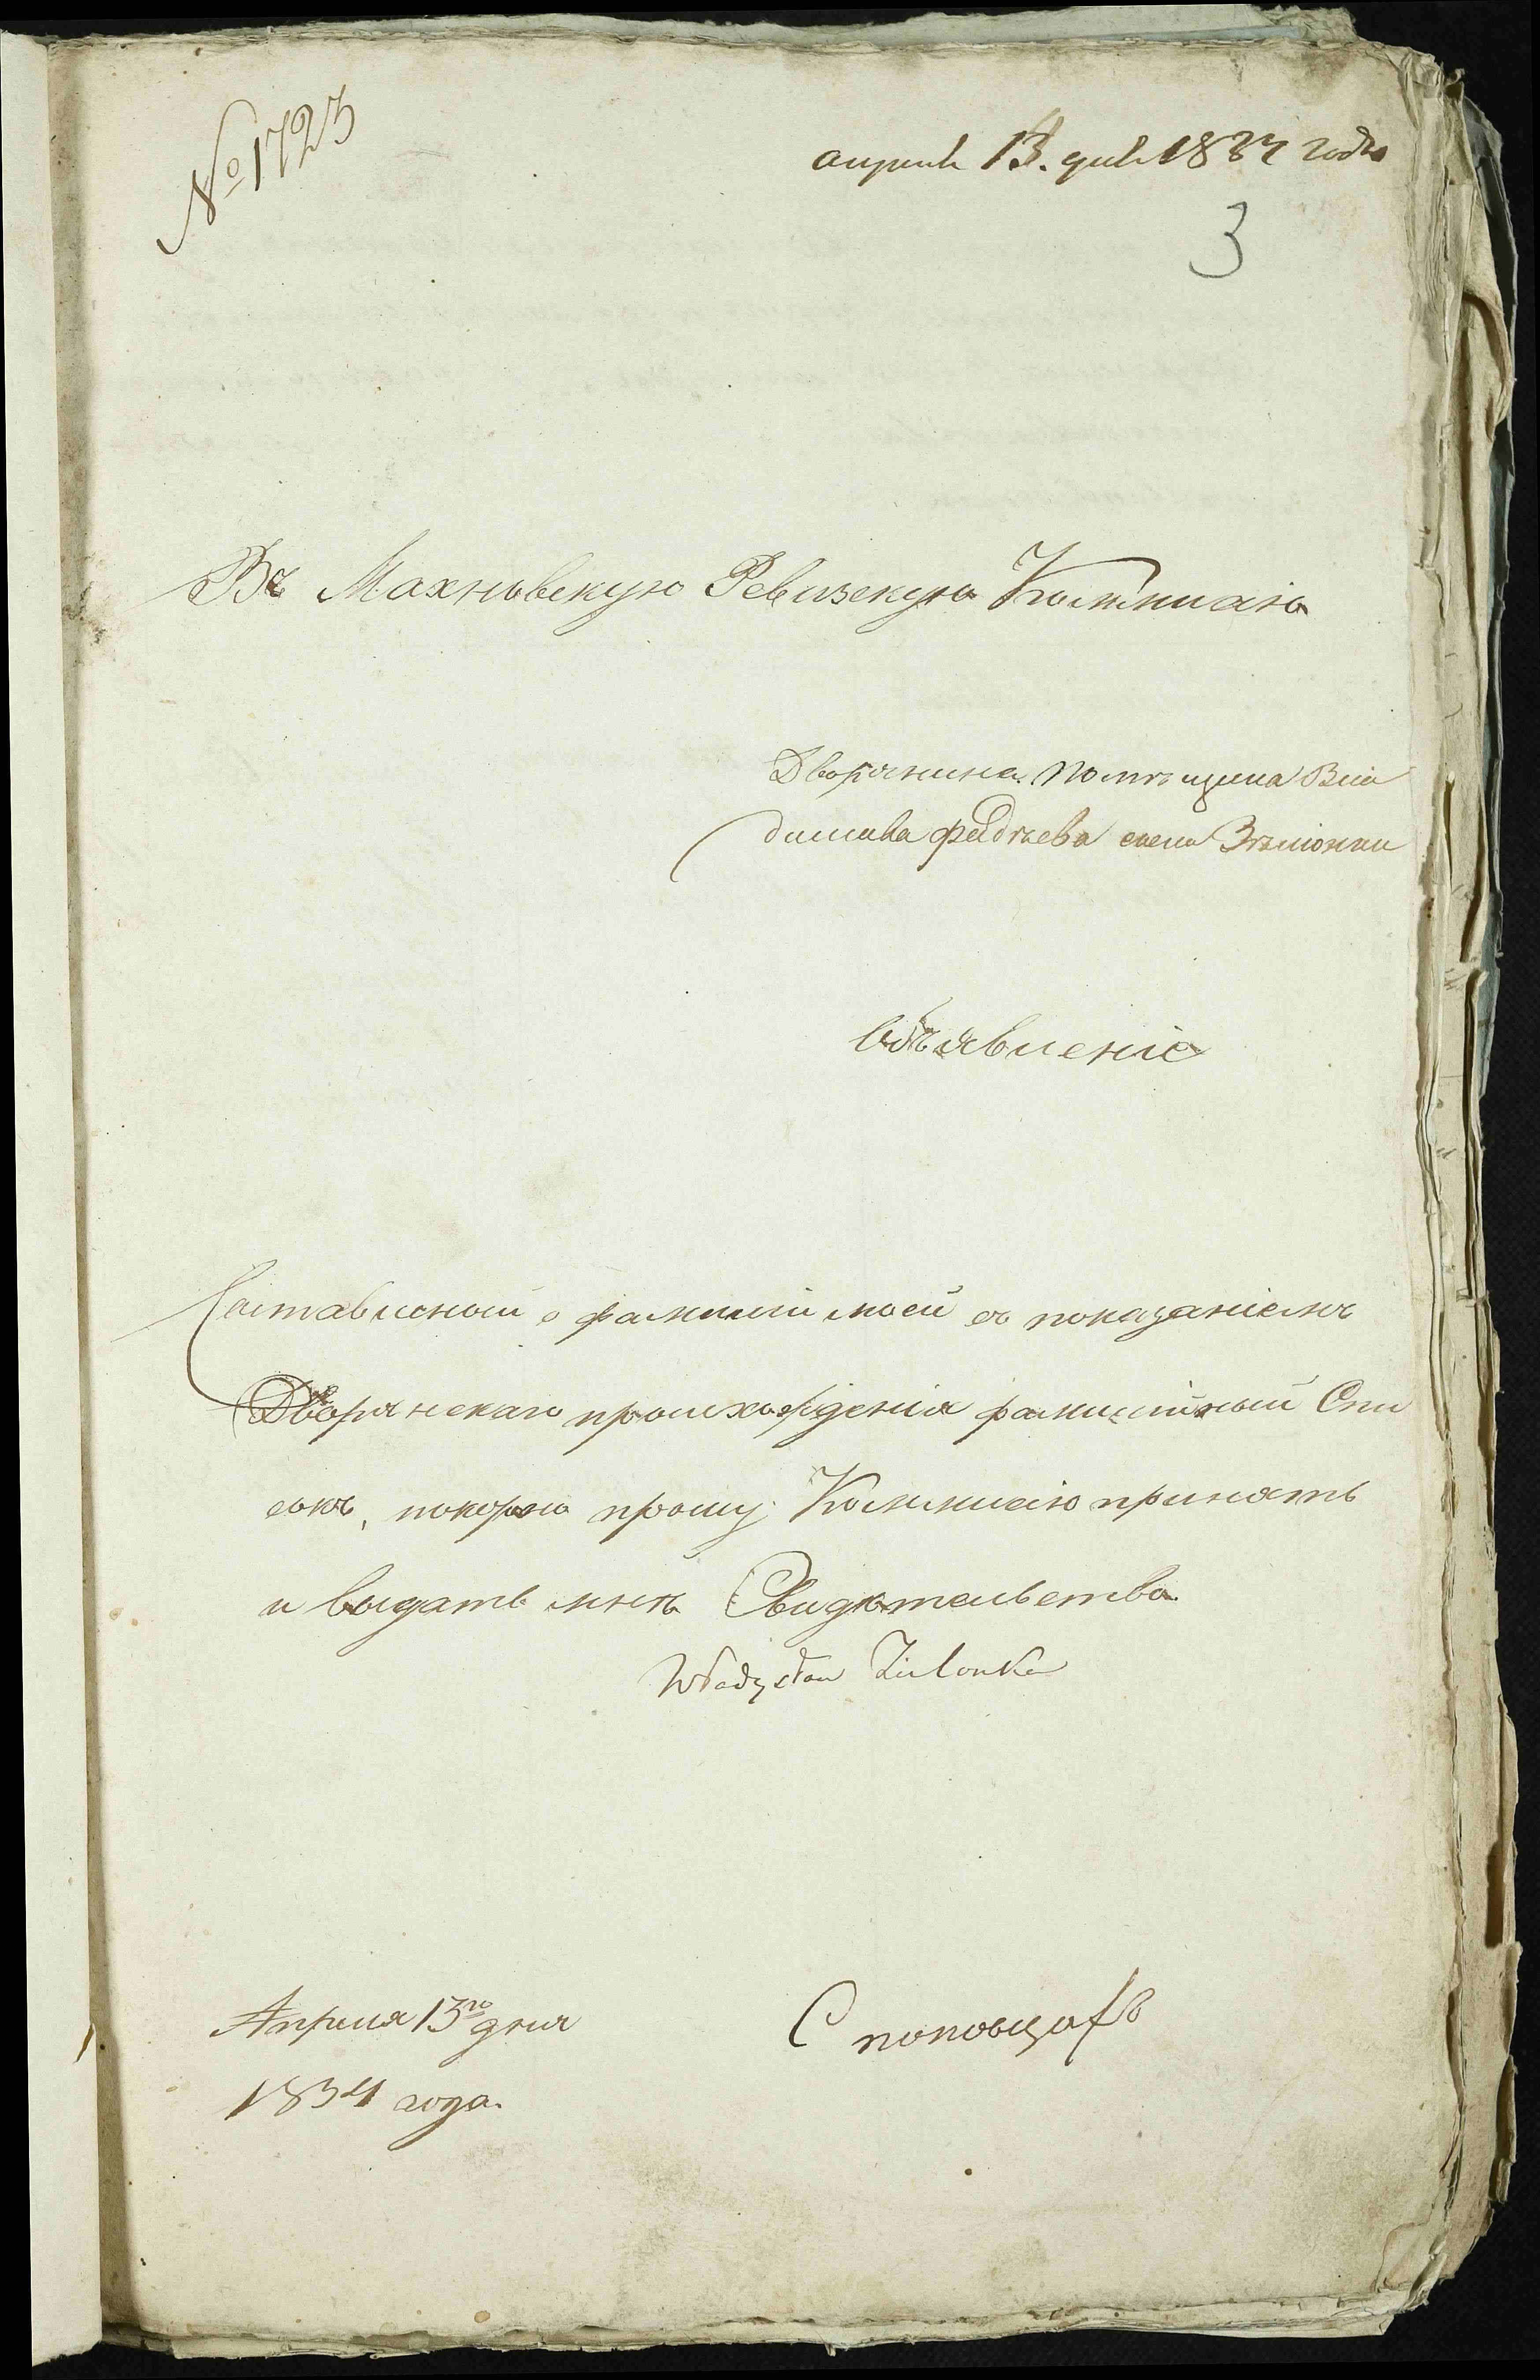 № 1723
априля 13. дня 1834 года
3
Въ Махновскую Ревизскую Коммисію
Дворянина Помѣщика Вла
дислава Фадѣева сына Зѣліонки
Объявленіе
Составленный о фамиліи моей съ показаніемъ
Дворянскаго происхожденія фамилійный Спи
сокъ, покорно прошу Коммисію принять
и выдать мнѣ Свидѣтельство
Władysław Zielonka
Априля 13го дня
1834 года.